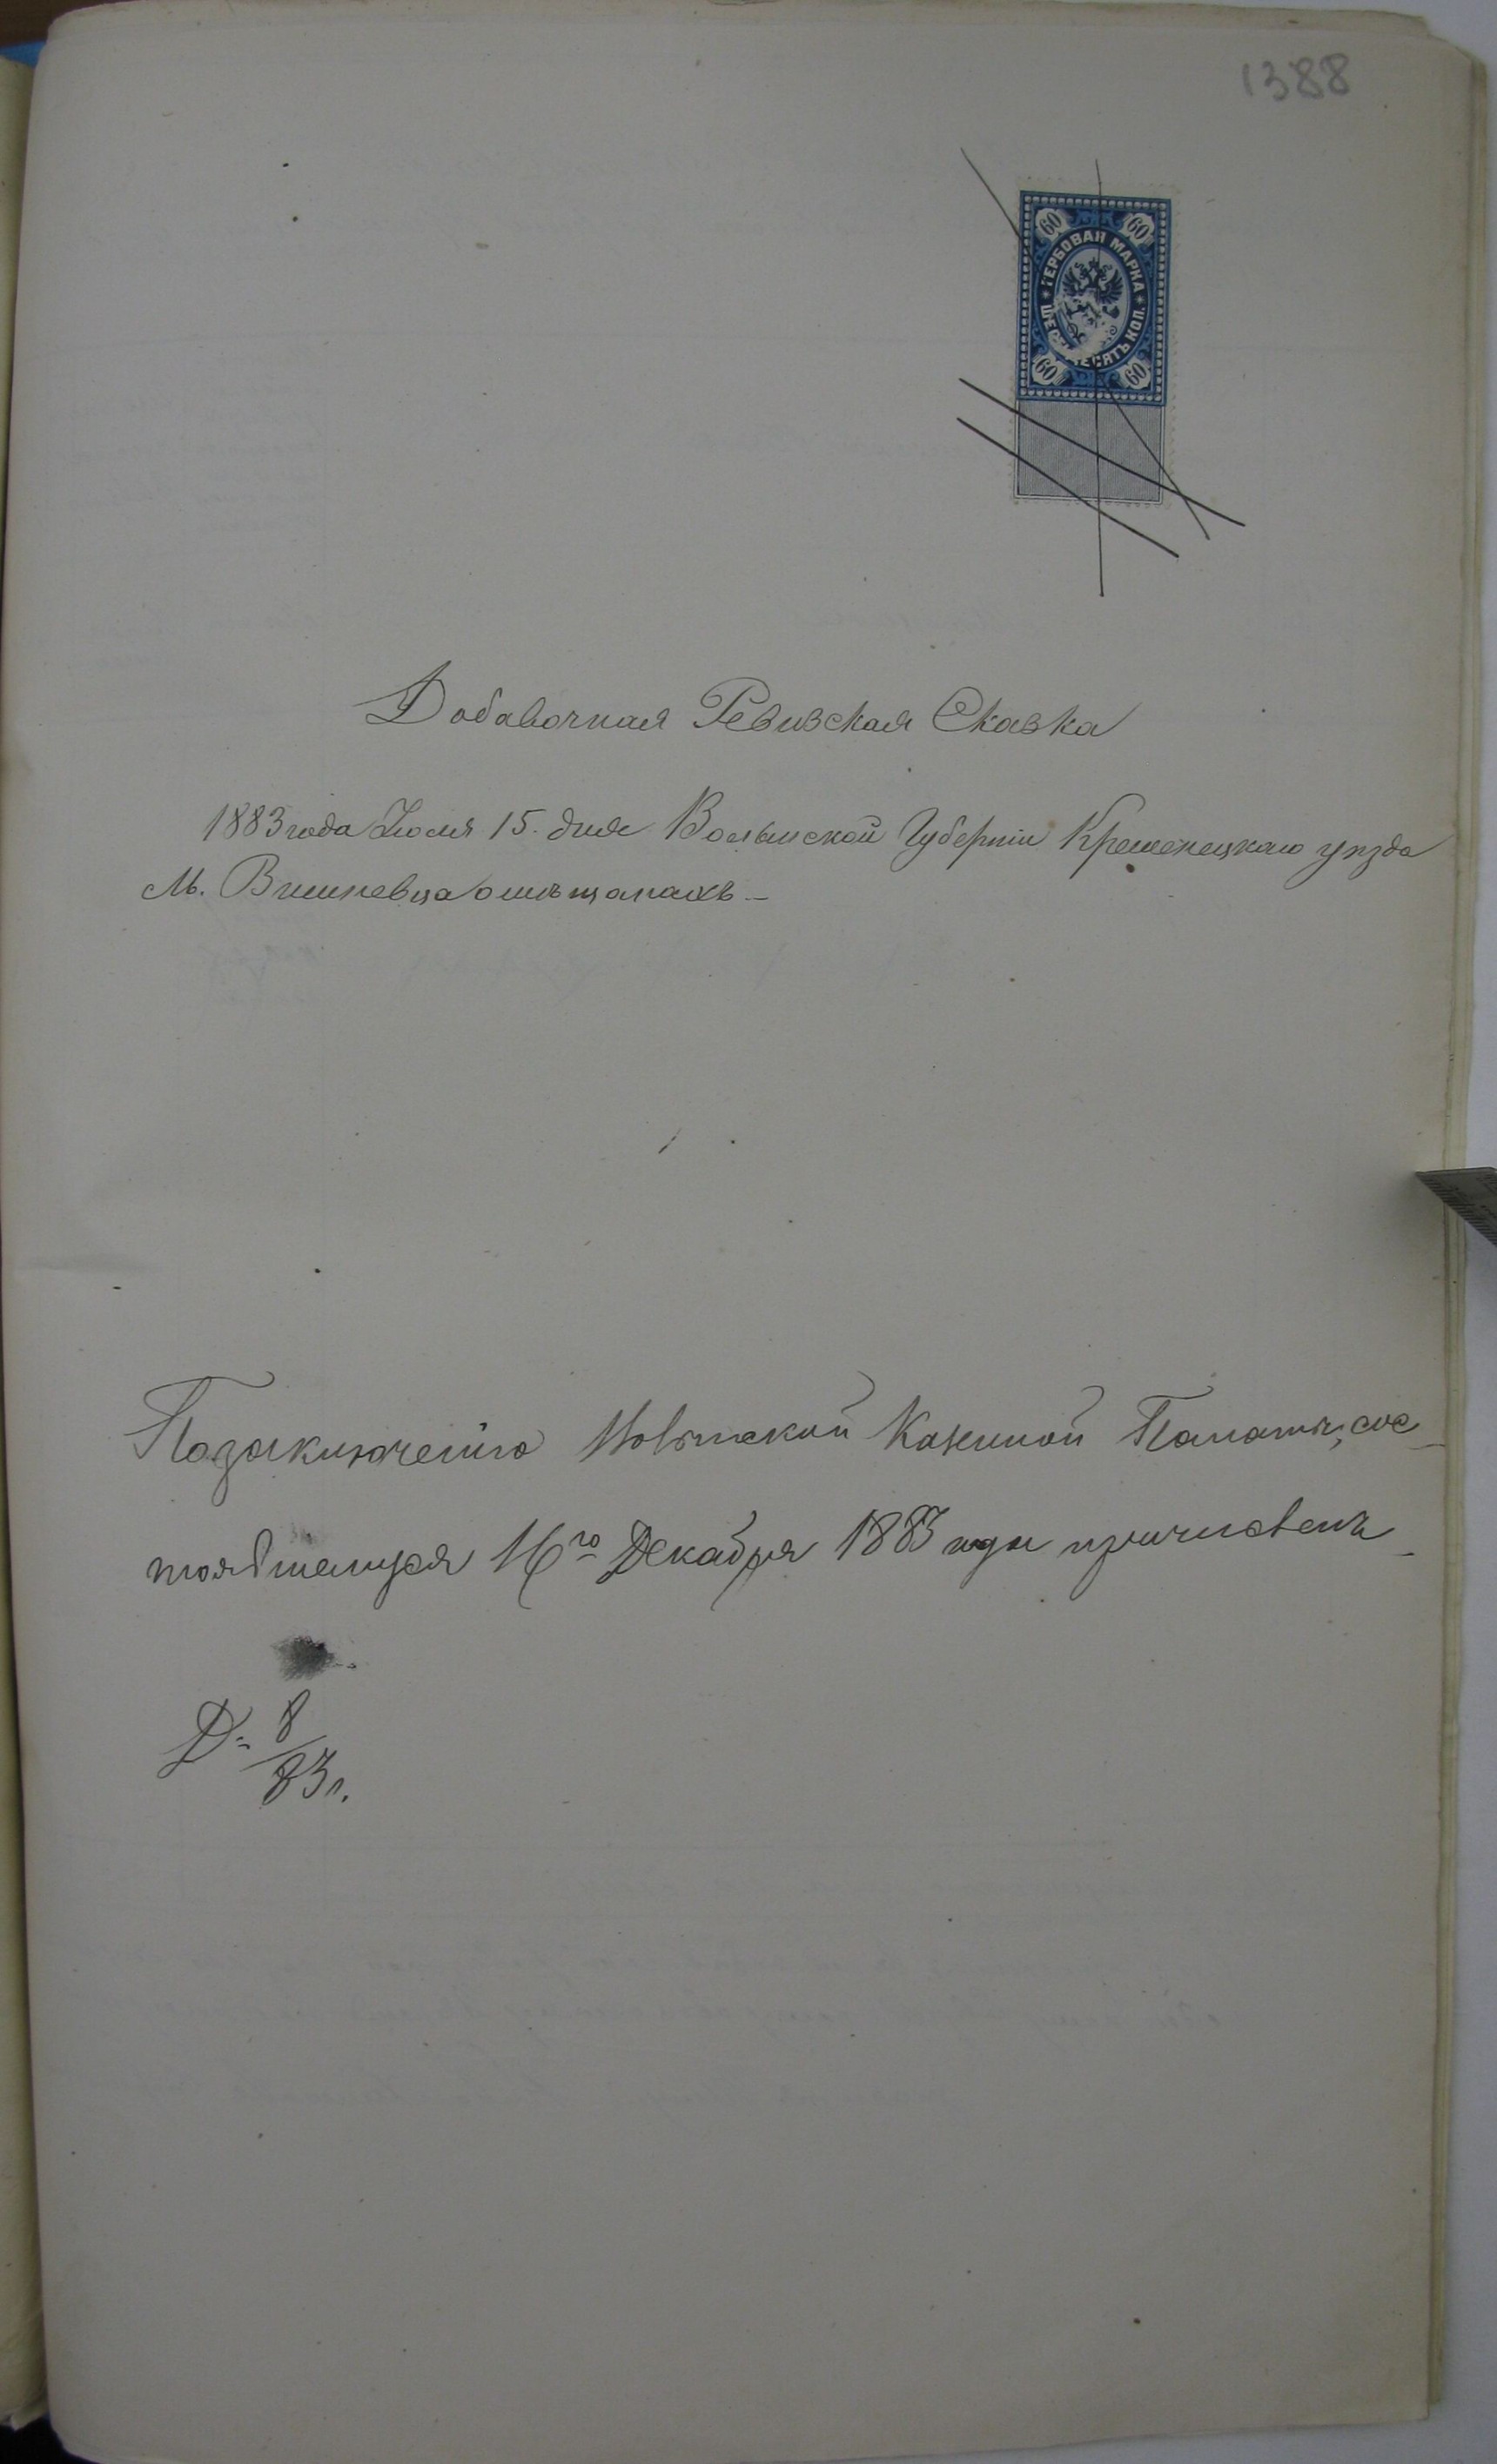 1388
60 60
ГЕРБОВАЯ МАРКА
ШЕСТЬДЕСЯТЪ КОП.
60 60
Добавочная Ревизская Сказка
1883 года Іюля 15. дня Волынской Губерніи Кременецкаго уѣзда
М. Вишневца о мѣщанахъ. –
По заключенію Волынской Казенной Палаты, сос-
тоявшемуся 16го Декабря 1883 года причисленъ
Д. 8/83 г.